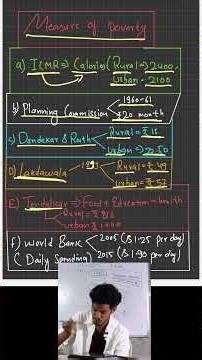 Measure of poverty
a) ICMR => Calories ( Rural => 2400
Urban - 2100
b) Planning Commission 1960-61
₹20 month
c) Dandekar & Rath Rural = ₹ 15
Urban => 22.50
D) Lakdawala Rural = ₹ 49
Urban = ₹ 57
E) Tendulkar => Food + Education + health
Rural = ₹ 816
Urban ₹ 1000
F) World Bank 2005 ($ 1.25 per day)
( Daily Spending) 2015 ($ 1.90 per day)